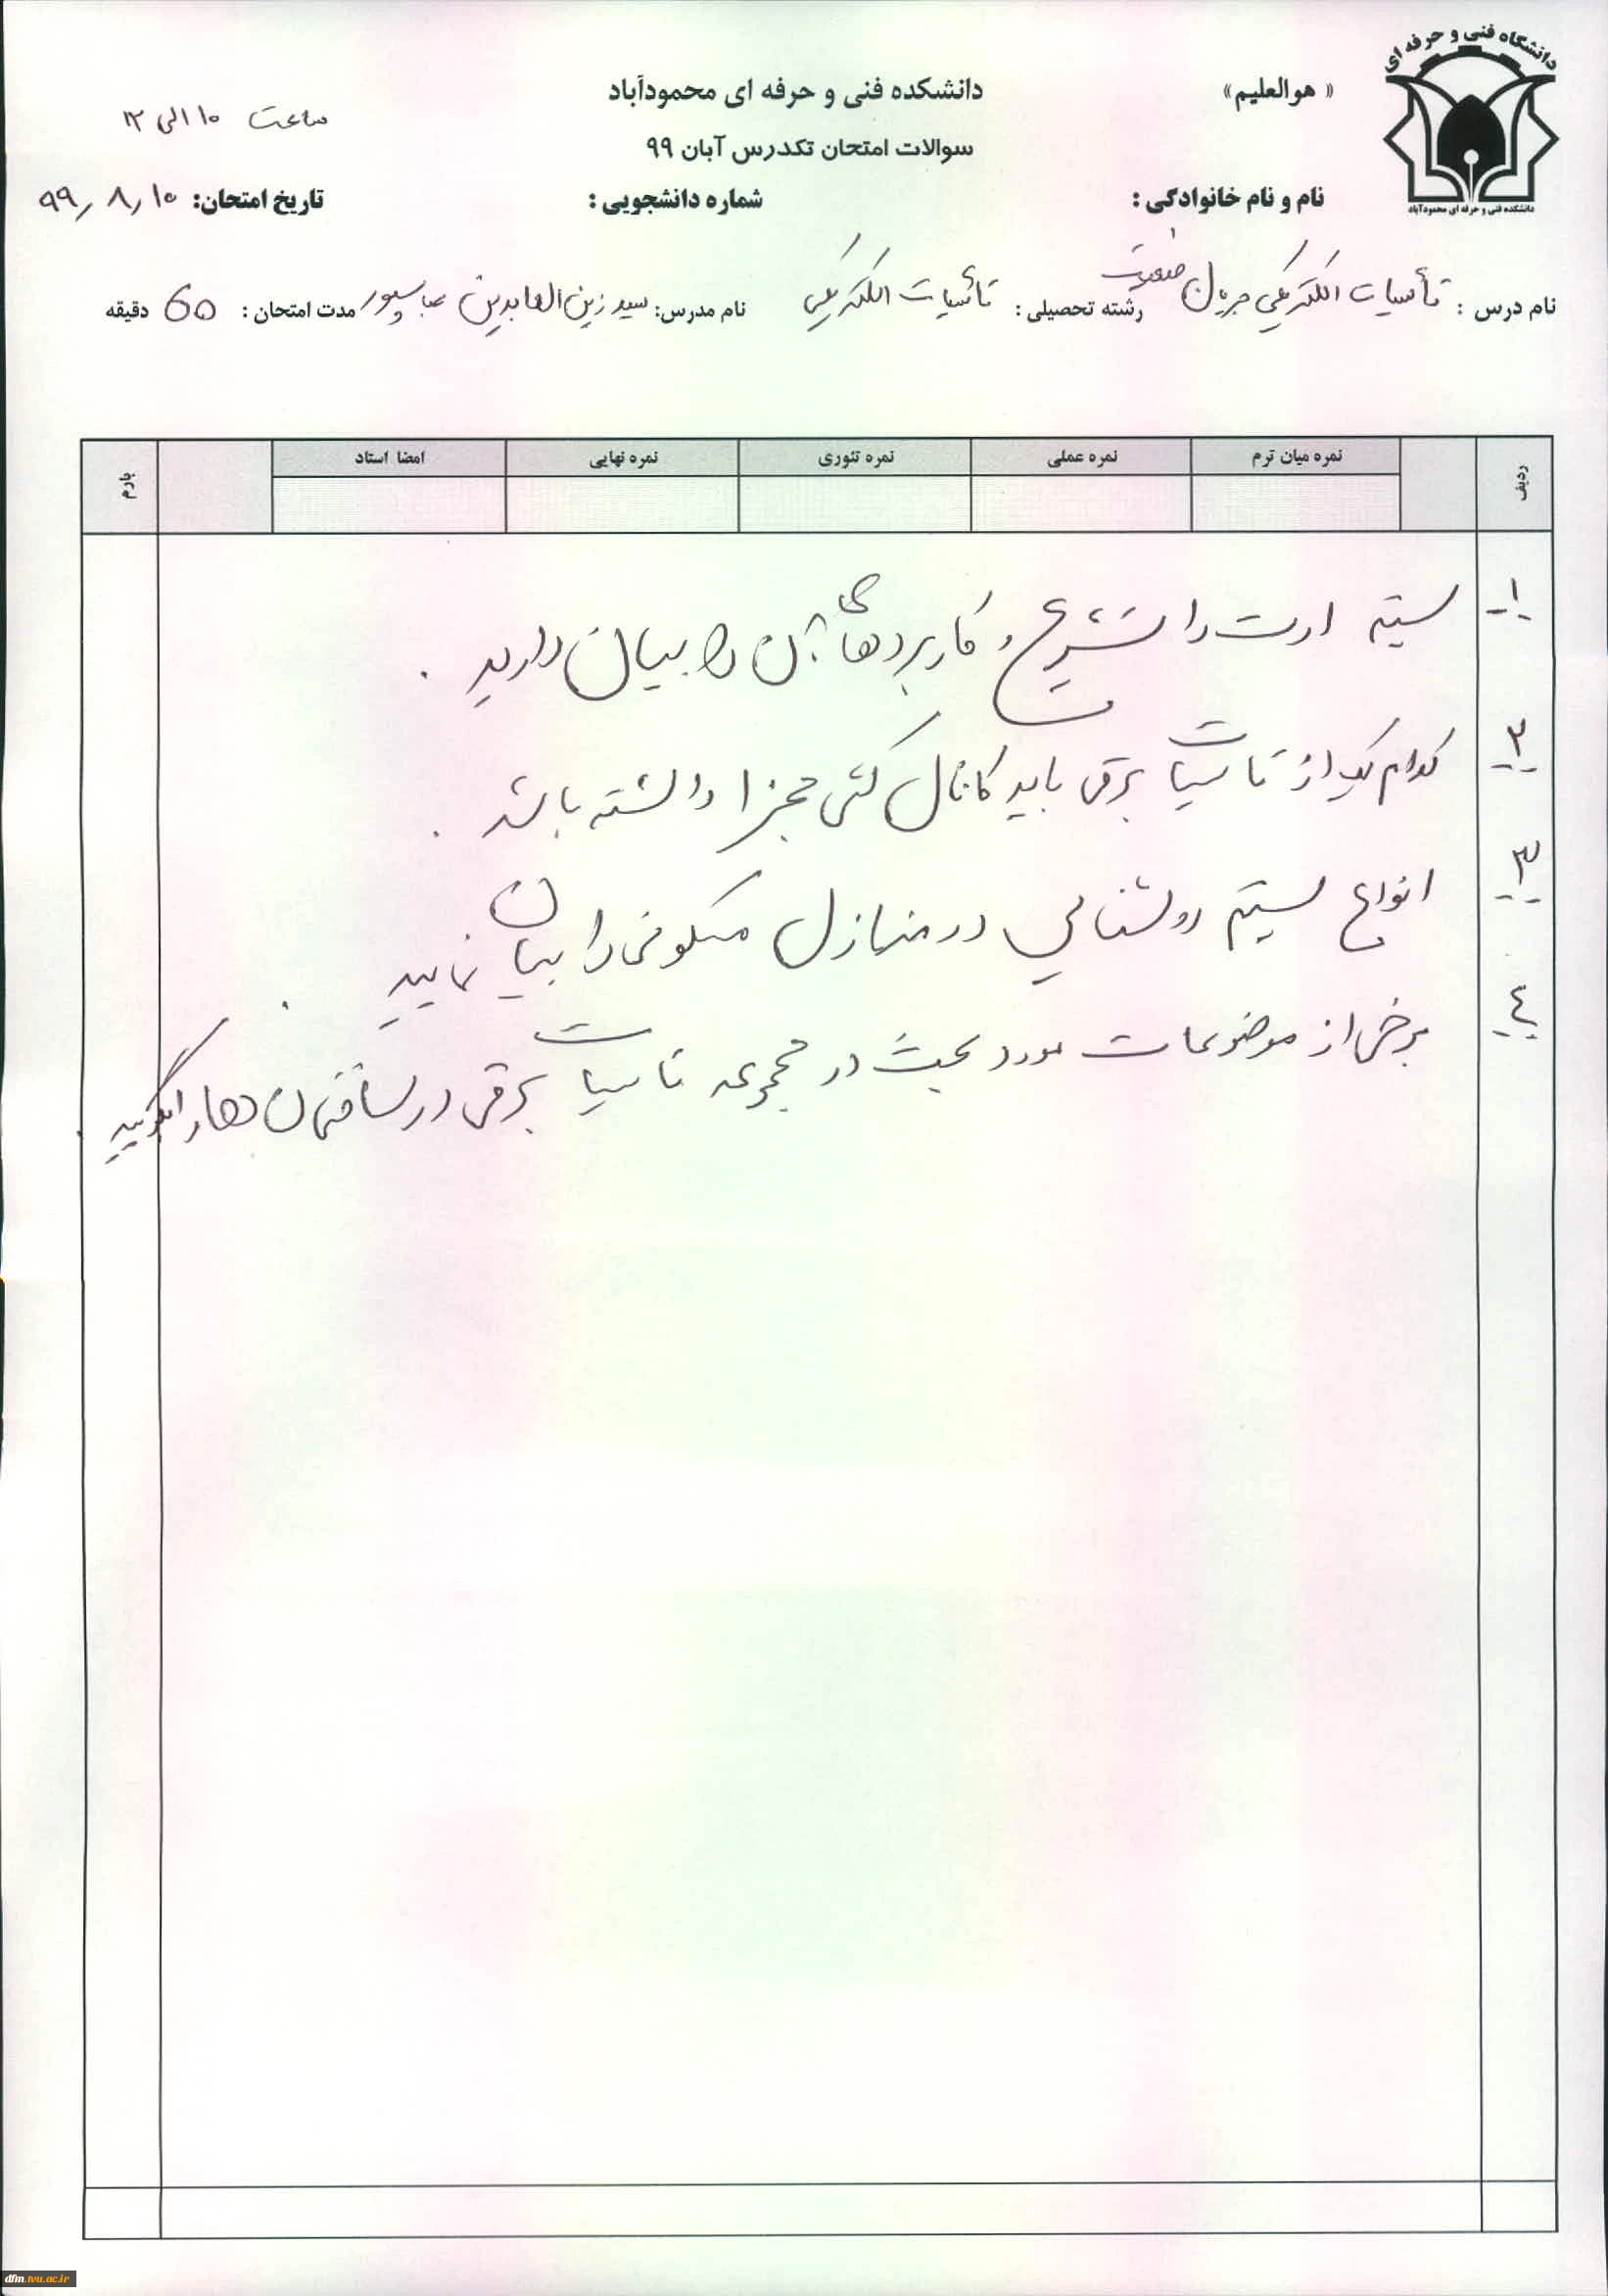 دانشگاه فنی و حرفه ای
دانشکده فنی و حرفه ای محمودآباد
« هوالعلیم»
دانشکده فنی و حرفه ای محمودآباد
ساعت ۱۰ الی ۱۲
سوالات امتحان تکدرس آبان ۹۹
نام و نام خانوادگی :
شماره دانشجویی :
تاریخ امتحان: ۹۹٫۸٫۱۰
نام درس : تأسیسات الکتریکی جریان ضعیف
رشته تحصیلی : تأسیسات الکتریکی
نام مدرس: سید زین العابدین عباسپور
مدت امتحان : 60 دقیقه
ردیف نمره میان ترم نمره عملی نمره تئوری نمره نهایی امضا استاد بارم
۱- سیستم ارت را تشریح و کاربردهای آن را بیان دارید .
۲- کدام یک از تاسیسات برق باید کانال کشی مجزا داشته باشد .
۳- انواع سیستم روشنایی در منازل مسکونی را بیان نمایید .
۴- برخی از موضوعات مورد بحث در مجموعه تاسیسات برقی در ساختمان ها را بگویید .
dfm.tvu.ac.ir